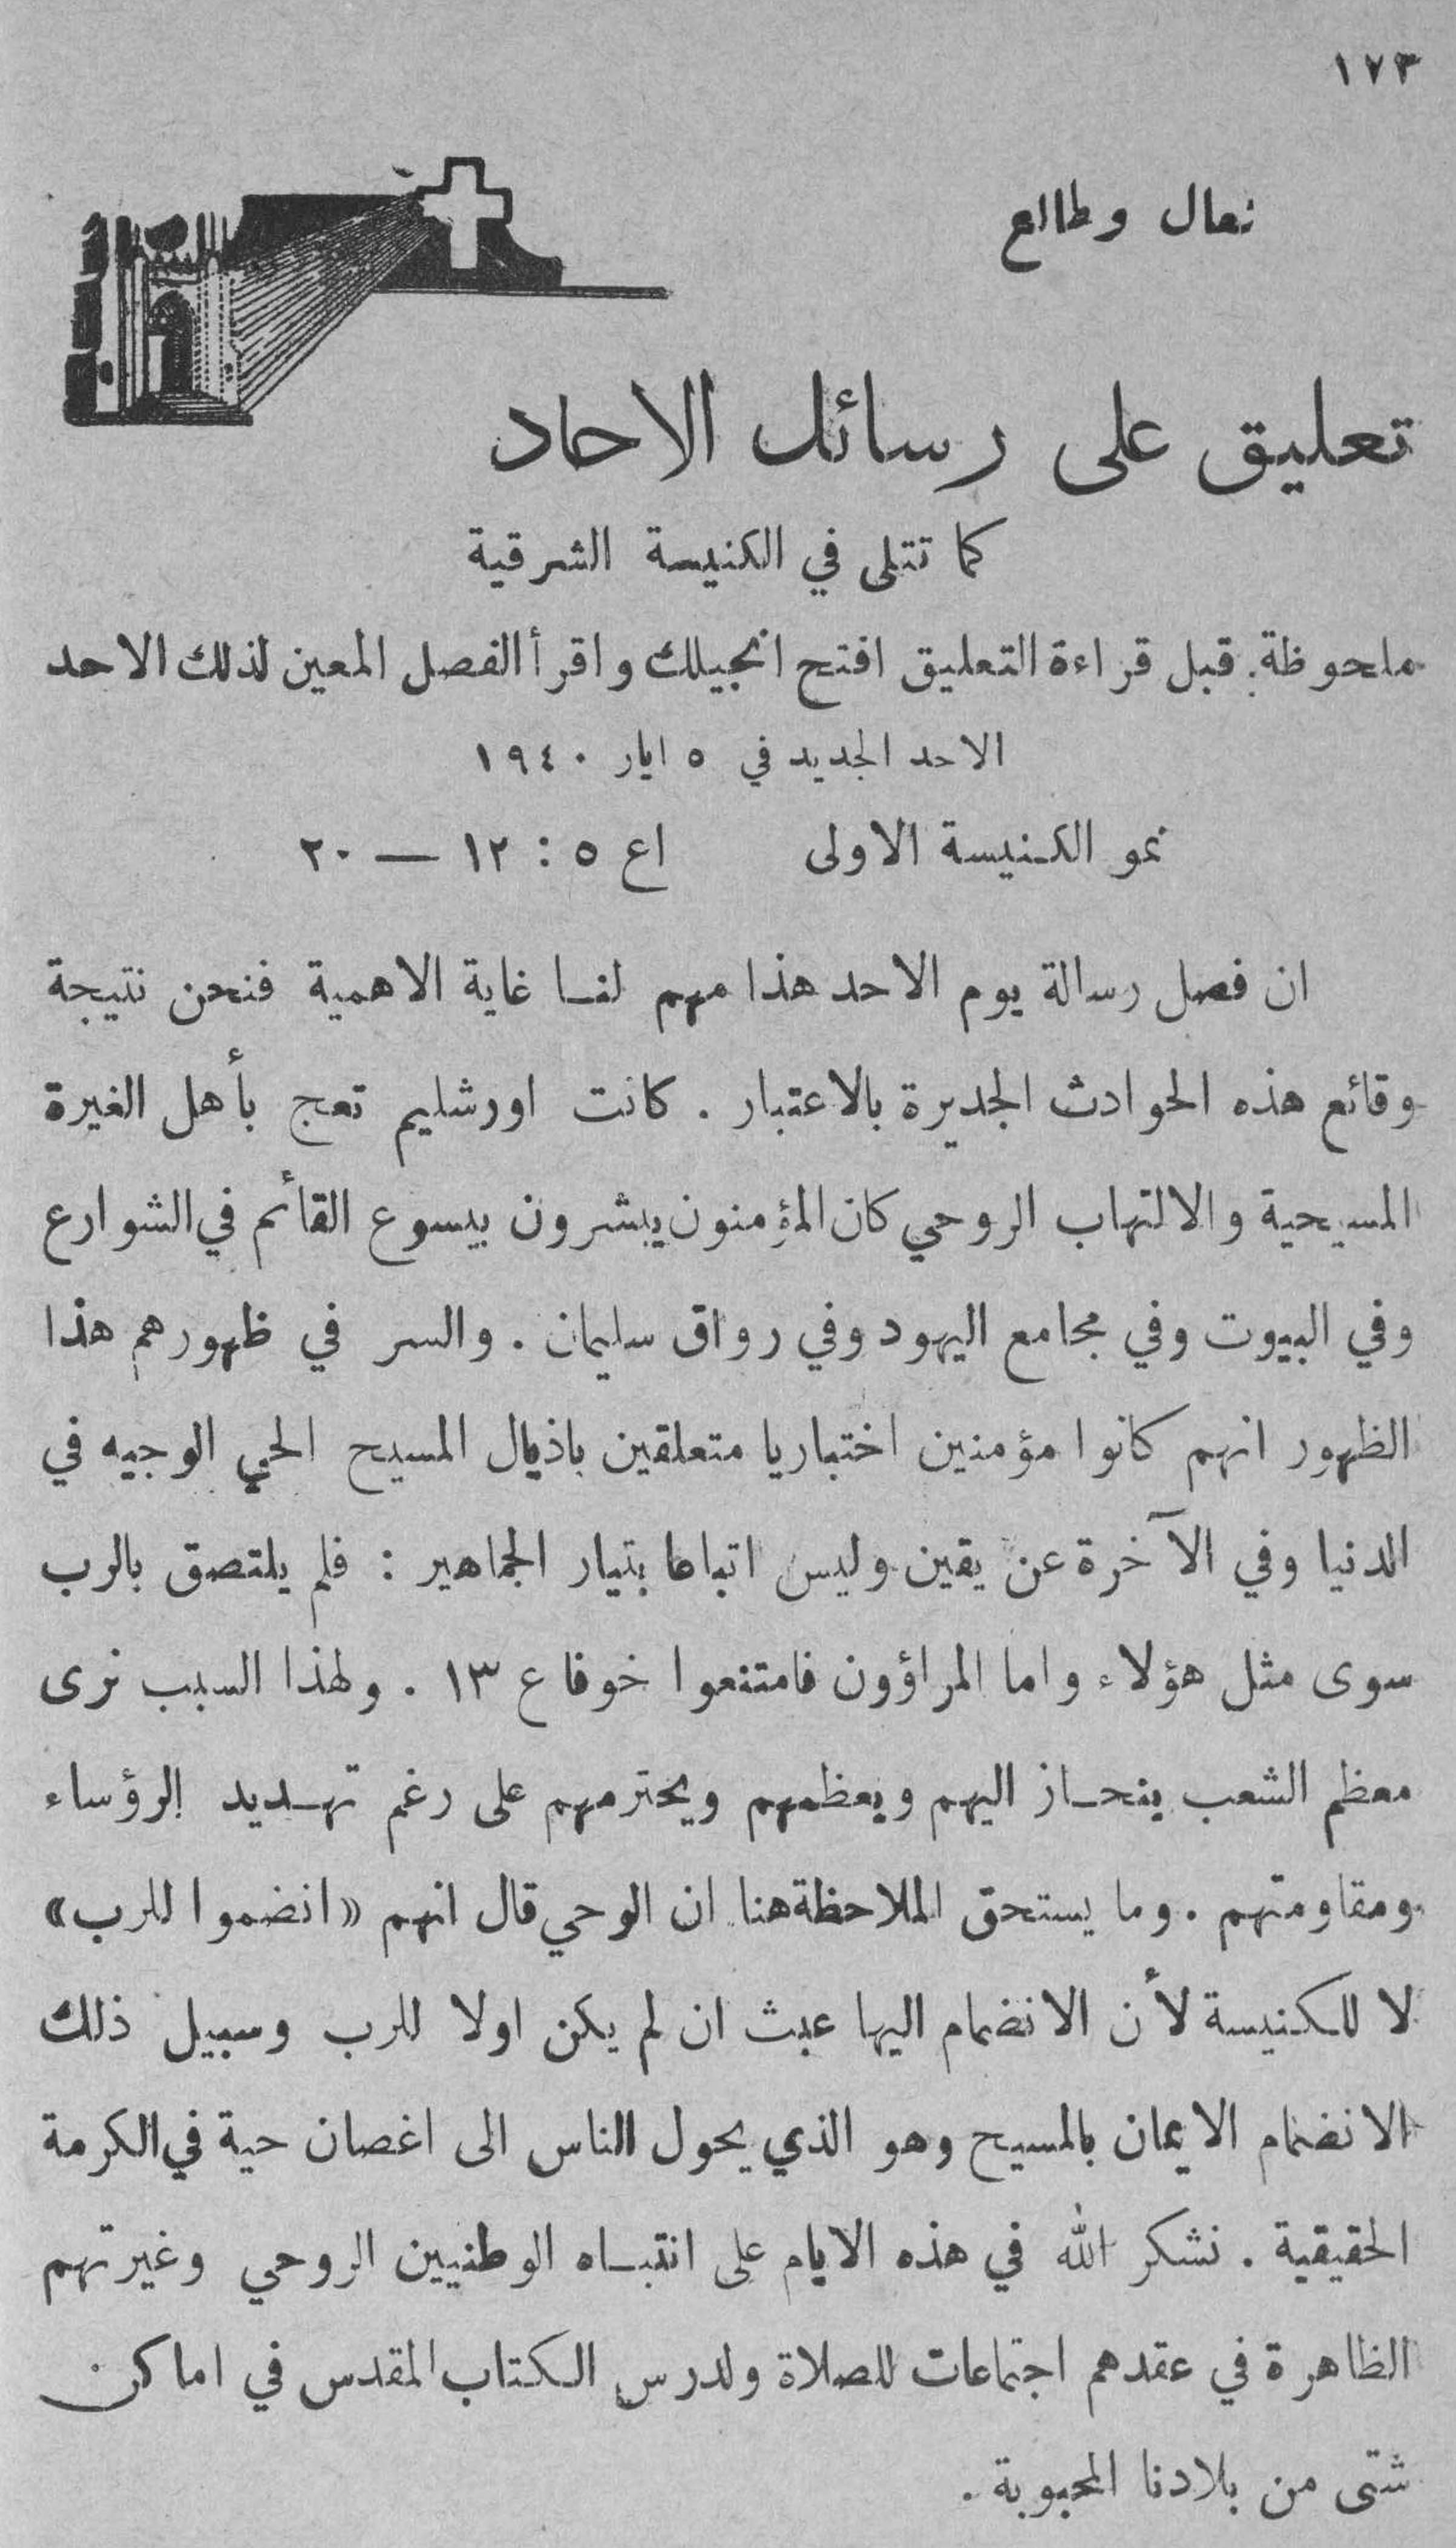 ١٧٣
تعال وطالع
تعليق على رسائل الاحاد
كما تتلى في الكنيسة الشرقية
ملحوظة: قبل قراءة التعليق افتح انجيلك واقرأ الفصل المعين لذلك الاحد
الاحد الجديد في ٥ ايار ١٩٤٠
نمو الكنيسة الاولى اع ٥ : ١٢ — ٢٠
ان فصل رسالة يوم الاحد هذا مهم لنا غاية الاهمية فنحن نتيجة
وقائع هذه الحوادث الجديرة بالاعتبار . كانت اورشليم تعج بأهل الغيرة
المسيحية والالتهاب الروحي كان المؤمنون يبشرون بيسوع القائم في الشوارع
وفي البيوت وفي مجامع اليهود وفي رواق سليمان . والسر في ظهورهم هذا
الظهور انهم كانوا مؤمنين اختباريا متعلقين باذيال المسيح الحي الوجيه في
الدنيا وفي الآخرة عن يقين وليس اتباعا بتيار الجماهير : فلم يلتصق بالرب
سوى مثل هؤلاء واما المراؤون فامتنعوا خوفا ع ١٣ . ولهذا السبب نرى
معظم الشعب ينحاز اليهم ويعظمهم ويحترمهم على رغم تهديد الرؤساء
ومقاومتهم . وما يستحق الملاحظة هنا ان الوحي قال انهم «انضموا للرب»
لا للكنيسة لأن الانضمام اليها عبث ان لم يكن اولا للرب وسبيل ذلك
الانضمام الايمان بالمسيح وهو الذي يحول الناس الى اغصان حية في الكرمة
الحقيقية . نشكر الله في هذه الايام على انتباه الوطنيين الروحي وغيرتهم
الظاهرة في عقدهم اجتماعات للصلاة ولدرس الكتاب المقدس في اماكن
شتى من بلادنا المحبوبة .